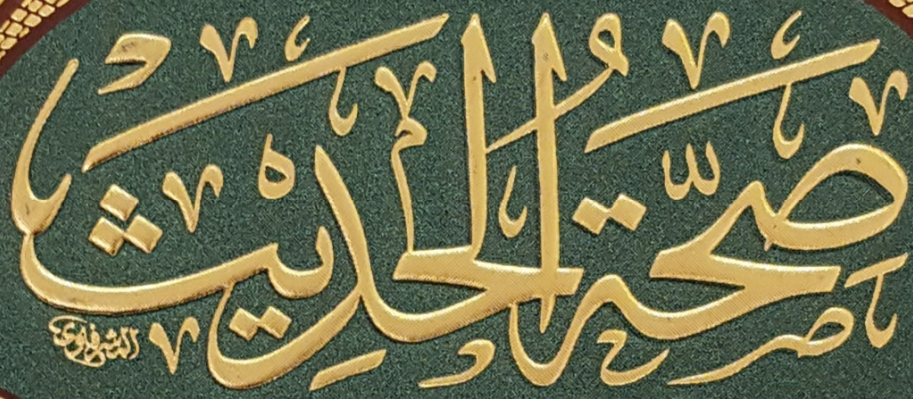 صِحَّةُ الحَدِيث
الشرقاوي